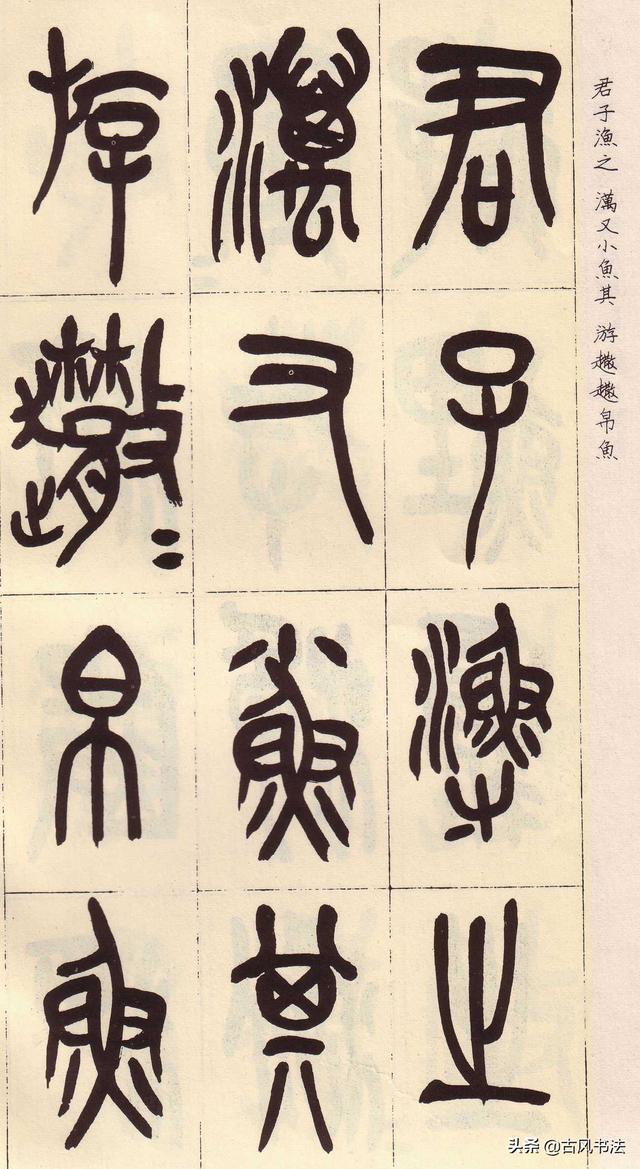 君子漁之
澫又小魚其
游趣趣帛魚
君子漁之 澫又小魚其 游趣趣帛魚
头条 @古风书法